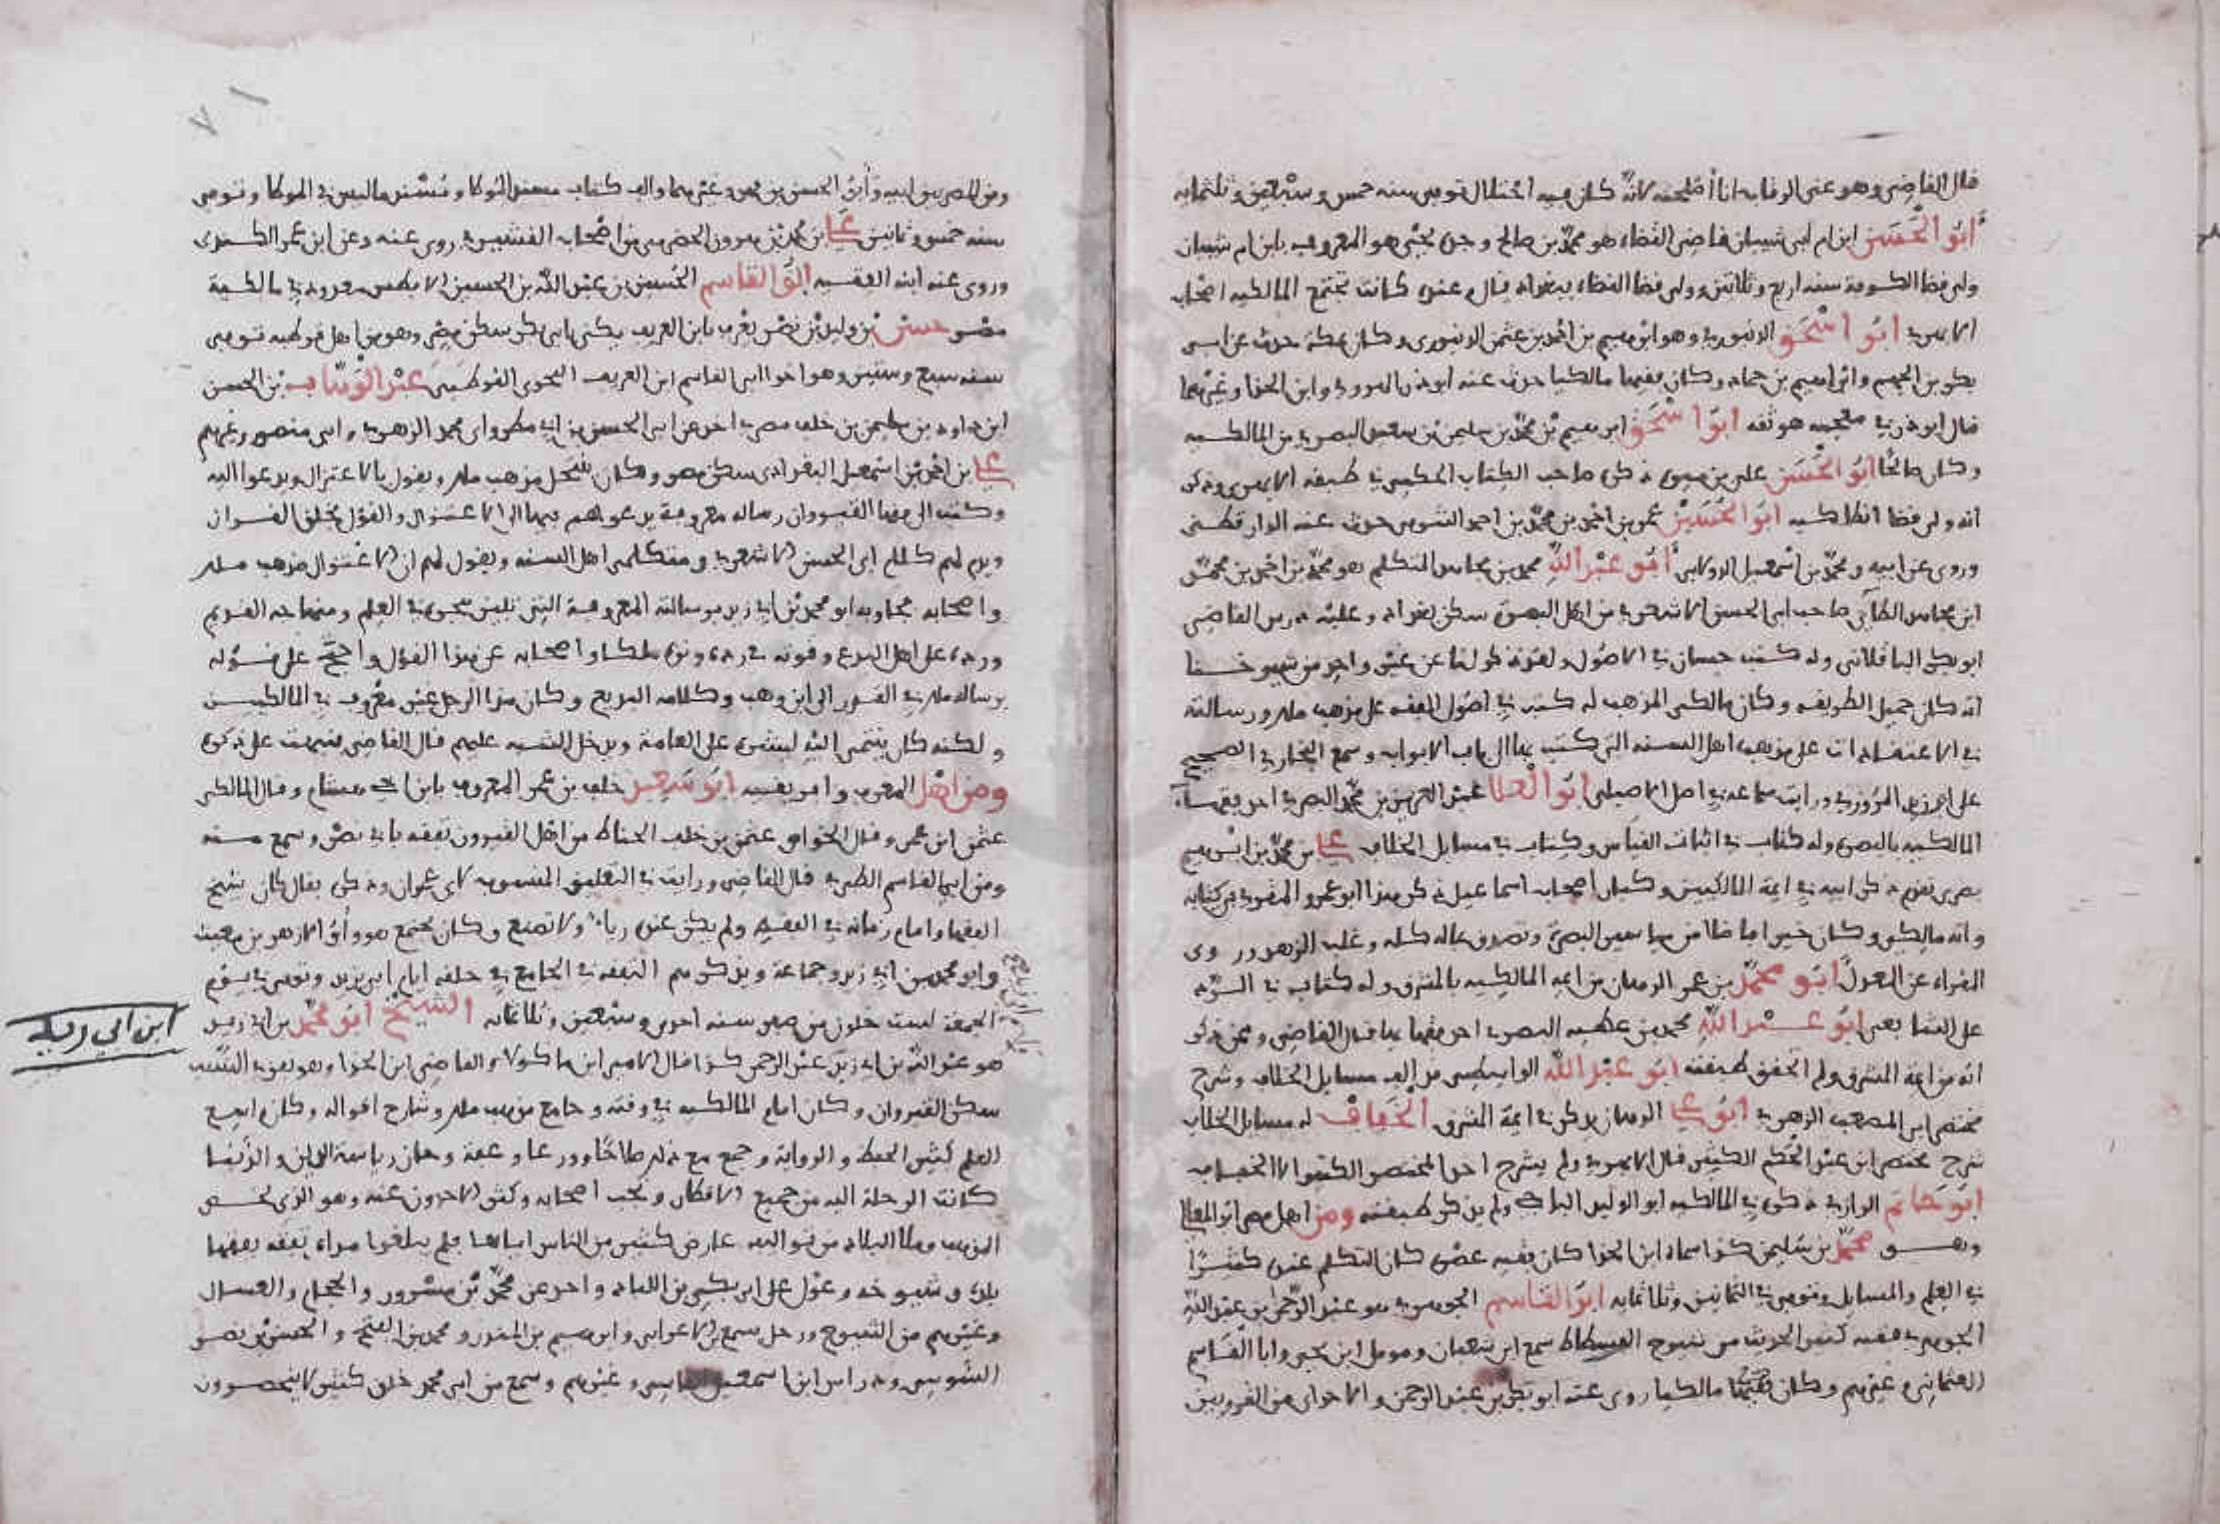 قال القاضي وهو عندي الوقار انا أصلحته لانه كان فيه اختلال توفي سنه خمس وسبعين وثلثمايه
أبو الحسن ابن ام ابي شيبان قاضي القضاه هو محمد بن صالح وجدي يحيى هو المعروف بابن ام شيبان
ولي قضا الكوفة سنه اربع وثلاثين وولي قضا القضاه ببغداد قال وعنده كانت تجتمع المالكيه اصحاب
الابهري ابو اسحق الدينوري وهو ابراهيم بن احمد بن عثمن الدينوري وكان بمكة حدث عن ابي
بكر بن الجهم وابراهيم بن حماد وكان فقيها مالكيا حدث عنه ابو ذر الهروي وابن الحذا وغيرهما
قال ابو ذر في معجمه هو ثقه ابو اسحق ابراهيم بن محمد بن سليمن بن سعيد البصري من المالكيه
وكان صالحا ابو الحسن علي بن ميسره ذكره صاحب الكتاب الحكمي في طبقه الابهري وذكر
انه ولي قضا انطاكيه ابو الحسين عمر بن احمد بن محمد بن احمد التستري حدث عنه الدارقطني
وروى عن ابيه ومحمد بن اسمعيل الدولابي أبو عبد الله محمد بن مجاهد المتكلم هو محمد بن احمد بن محمد
ابن مجاهد الطائي صاحب ابي الحسن الاشعري من اهل البصرة سكن بغداد وعليه درس القاضي
ابو بكر الباقلاني وله كتب حسان في الاصول ولقد ذكر لنا عن غير واحد من شيوخنا
انه كان جميل الطريقه وكان مالكي المذهب له كتب في أصول الفقه على مذهب ملك ورسالته
في الاعتقادات على مذهب اهل السنه التي كتب بها الى باب الابواب وسمع البخاري الصحيح
على ابي زيد المروزي ورايت سماعه في اصل الاصيلي ابو العلا عبد العزيز بن محمد البصري احد فقهاء
المالكيه بالبصره وله كتاب في اثبات القياس وكتاب في مسايل الخلاف علي بن محمد بن ابراهيم
بصري تقدم ذكر ابيه في ايمة المالكيين وكبار اصحاب اسماعيل ذكر هذا ابو عمرو المقري في كتابه
وانه مالكي وكان خيرا فاضلا من مياسير البصرة وتصدق بماله كله وغلب الزهد وروى
القراه عن المعدل ابو محمد بن عمر الرهان من ايمه المالكيه بالمشرق وله كتاب في الرد
على الشافعي ابو عبد الله محمد بن عطيه البصري احد فقهايها قال القاضي وممن ذكر
انه من ايمة المشرق ولم اتحقق طبقته ابو عبد الله الواسطي من الف مسايل الخلاف وشرح
مختصر ابي المصعب الزهري ابو علي الرهان يذكر في ايمة المشرق الخفاف له مسايل الخلاف
شرح مختصر ابن عبد الحكم الكبير قال الابهري ولم يشرح احد المختصر الكبير الا الخفاف
ابو حاتم الرازي ذكره في المالكيه ابو الوليد الباجي ولم يذكر طبقته ومن اهل مصر ابو المعالي
وهو محمد بن سليمن كذا سماه ابن الحذا كان فقيه عصره كان المتكلم عنده كثيرا
في العلم والمسايل وتوفي في الثمانين وثلاثمايه ابو القاسم الجوهري هو عبد الرحمن بن عبد الله
الجوهري فقيه كثير الحديث من شيوخ الفسطاط سمع ابن شعبان ومؤمل ابن يحيى وابا القاسم
العثماني وغيرهم وكان فقيها مالكيا روى عنه ابو بكر بن عبد الرحمن والاجدابي من القرويين
ومن المصريين ابنه وأبو الحسن بن فهد وغيرهما والف كتاب مسند الموطا ومسند ما ليس في الموطا وتوفي
سنه خمس وثمانين علي بن محمد بن هرون الحضرمي من اصحاب القشيري روى عنه وعن ابن عمر الكندي
وروى عنه ابنه الفقيه ابو القاسم الحسين بن عبد الله بن الحسين الابطحي معدود في مالكية
مصر حسين بن وليد بن نصر يعرف بابن العريف يكنى بابي بكر سكن مصر وهو من اهل قرطبه توفي
سنه سبع وستين وهو اخو ابي القاسم ابن العريف النحوي القرطبي عبد الوهاب بن الحسن
ابن داود بن سليمن بن خلف مصري اخذ عن ابي الحسن بن ابي مطر وابي محمد الزهري وابي منصور وغيرهم
علي بن احمد بن اسمعيل البغدادي سكن مصر وكان ينتحل مذهب ملك ويقول بالاعتزال ويدعوا اليه
وكتب الى فقها القيروان رسالة معروفة يدعوهم فيها الى الاعتزال والقول بخلق القران
ويذم لهم كلام ابي الحسن الاشعري ومتكلمي اهل السنه ويقول لهم ان الاعتزال مذهب ملك
واصحابه فجاوبه ابو محمد بن ابي زيد برسالته المعروفة التي تبين تبحره في العلم ومنهاجه القويم
ورده على اهل البدع وقوته في رده ونزه ملكا واصحابه عن هذا القول واحتج على قوله
برساله ملك في القدر الى ابن وهب وكلامه البديع وكان هذا الرجل غير معروف في المالكيين
ولكنه كان ينتمي اليه ليتشره على العامة ويدخل الشبه عليهم قال القاضي فنبهت على ذكره
ومن اهل المغرب وافريقيه ابو سعيد خلف بن عمر المعروف بابن اخي هشام وقال المالكي
عثمن ابن عمر وقال الخواص عثمن بن خلف الحناط من اهل القيروان تفقه بابي نصر وسمع منه
ومن ابي القاسم الطبري قال القاضي ورايت في التعليق المنسوب لابي عمران وذكره فقال كان شيخ
الفقها وامام زمانه في الفقه ولم يكن عنده رياء ولا تصنع وكان يجتمع هو وأبو الازهر بن معتب
وابو محمد بن ابي زيد وجماعة ويذكرهم التفقه في الجامع في حلقه ايام ابي يزيد وتوفي في يوم
الجمعة لست خلون من صفر سنه احدى وسبعين وثلاثمايه الشيخ ابو محمد بن ابي زيد
هو عبد الله بن ابي زيد عبد الرحمن كذا قال الامير ابن ماكولا والقاضي ابن الحذا وهو نفزي النسب
سكن القيروان وكان امام المالكيه في وقته وجامع مذهب ملك وشارح اقواله وكان واسع
العلم كثير الحفظ والرواية وجمع مع ذلك صلاحا وورعا وعفة وحاز رياسة الدين والدنيا
كانت الرحلة اليه من جميع الاقطار ونجب اصحابه وكثر الاخذون عنه وهو الذي لخص
المذهب وملا البلاد من تواليفه عارض كثير من الناس اياها فلم يبلغوا مداه تفقه بفقها
بلده وشيوخه وعول على ابي بكر بن اللباد واخذ عن محمد بن مسرور والحجام والعسال
وغيرهم من الشيوخ ورحل وسمع ابن الاعرابي وابراهيم بن المنذر ومحمد بن الفتح والحسن بن نصر
السوسي ودراس ابن اسمعيل الفاسي وغيرهم وسمع من ابي محمد خلق كثير لا ينحصرون
ابن ابي زيد